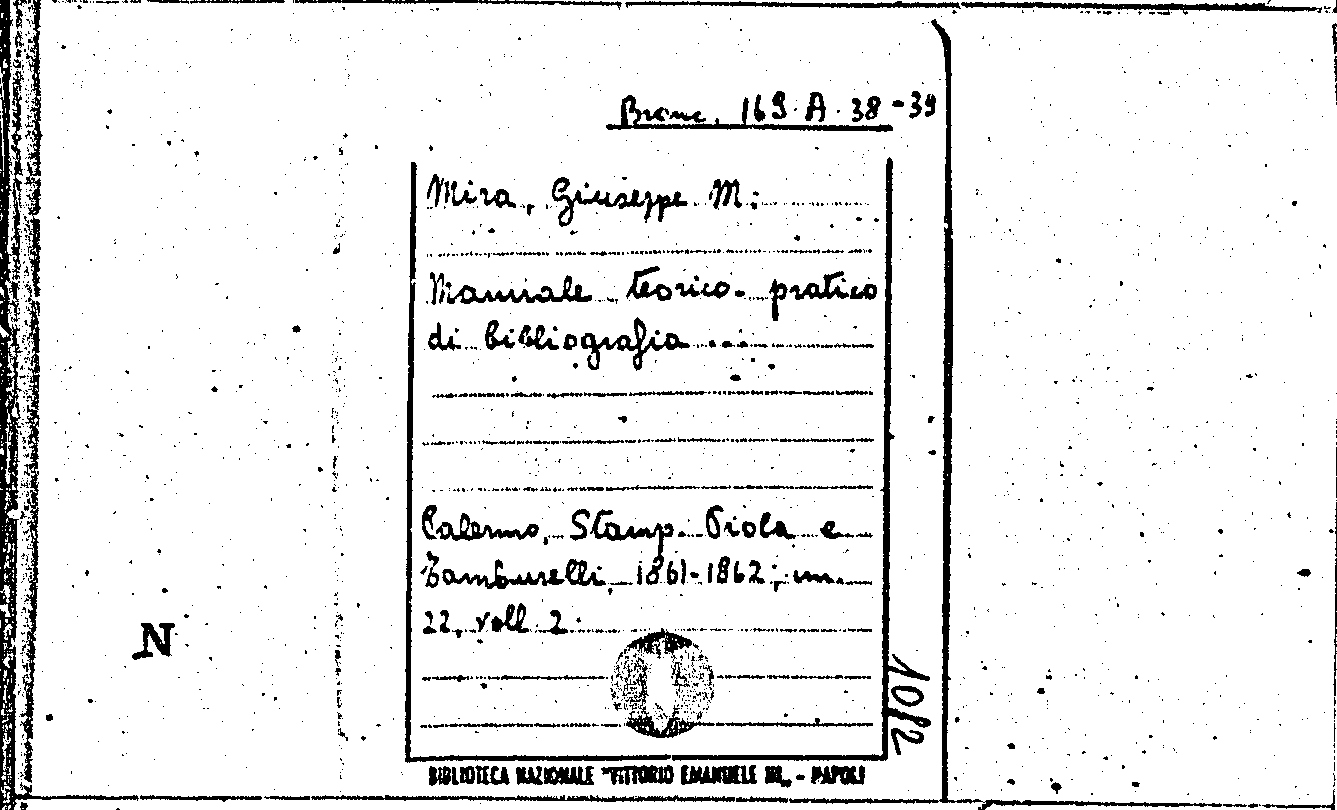 Branc. 169. A. 38-39
Mira, Giuseppe M.:
Manuale teorico-pratico
di bibliografia ...
Palermo, Stamp. Piola e
Tamburelli, 1861-1862; in.
22, voll. 2.
N
1082
BIBLIOTECA NAZIONALE "VITTORIO EMANUELE III„ - NAPOLI